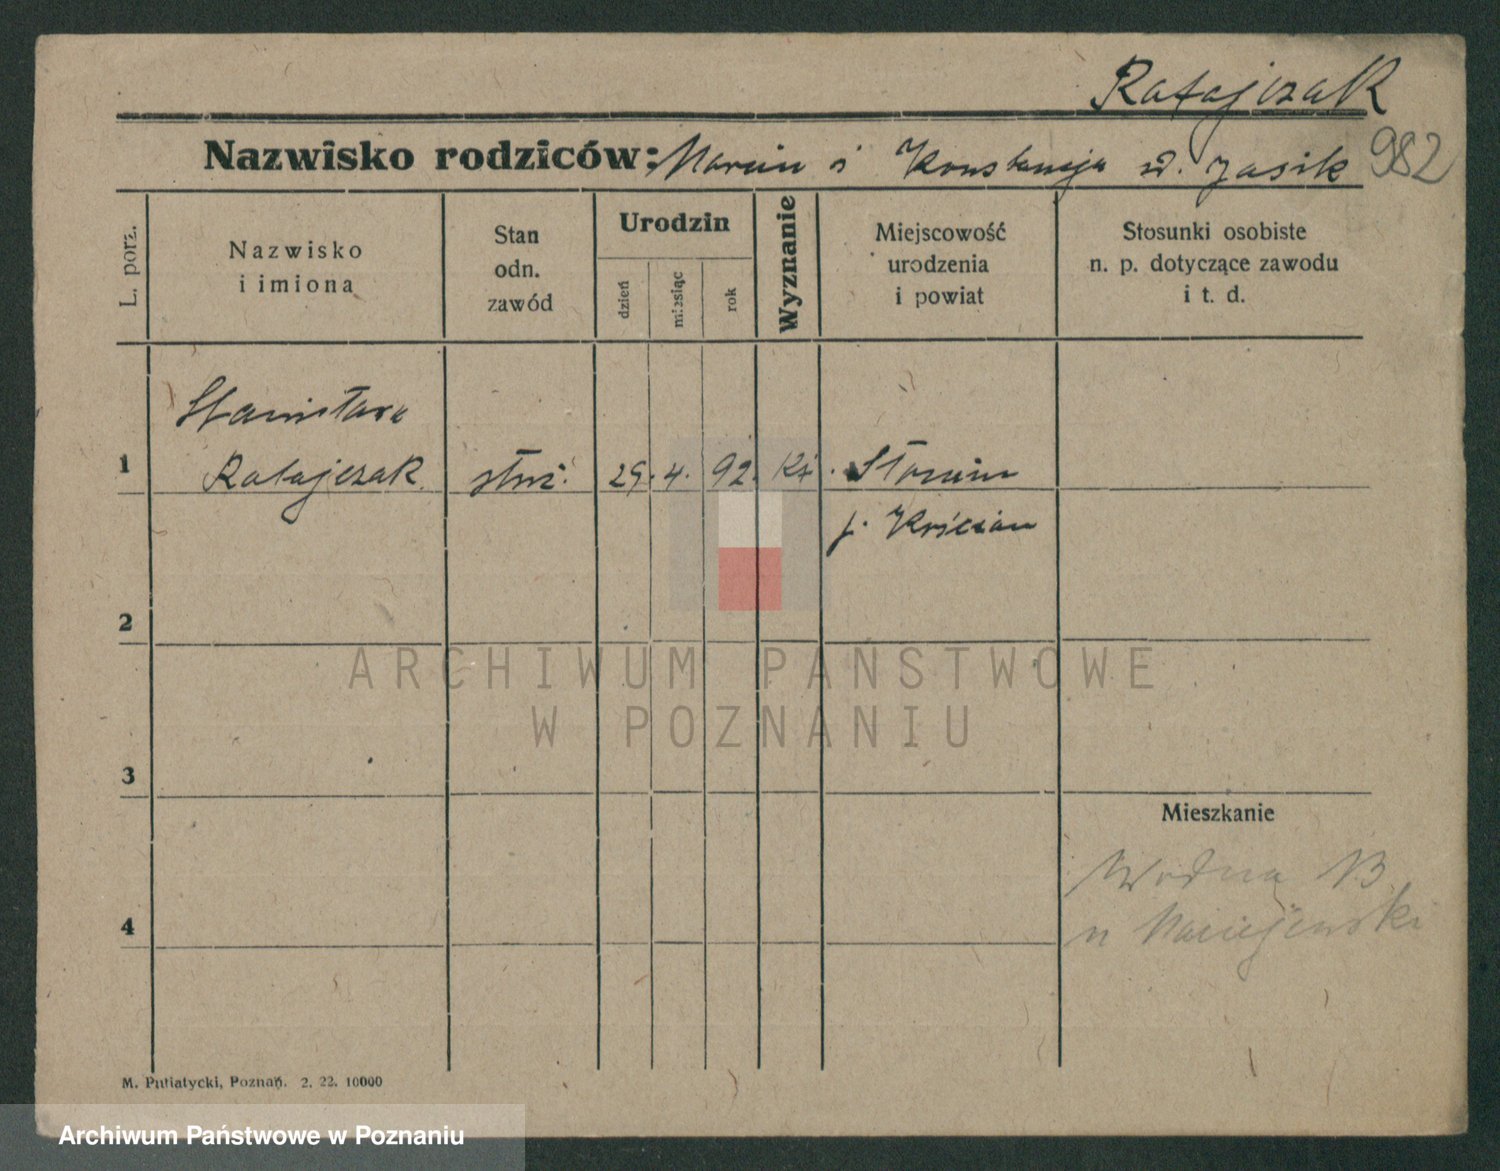 Ratajczak
982
Nazwisko rodziców: Marcin i Konstancja z d. Jasik
L. porz.
Nazwisko
i imiona
Stan
odn.
zawód
Urodzin
dzień
miesiąc
rok
Wyznanie
Miejscowość
urodzenia
i powiat
Stosunki osobiste
n. p. dotyczące zawodu
i t. d.
Stanisława
1 Ratajczak służ. 29. 4. 92. kt. Słonin
p. Kościan
2
3
4
Mieszkanie
Wodna 13
u Maciejewski
ARCHIWUM PAŃSTWOWE
W POZNANIU
M. Putiatycki, Poznań. 2. 22. 10000
Archiwum Państwowe w Poznaniu